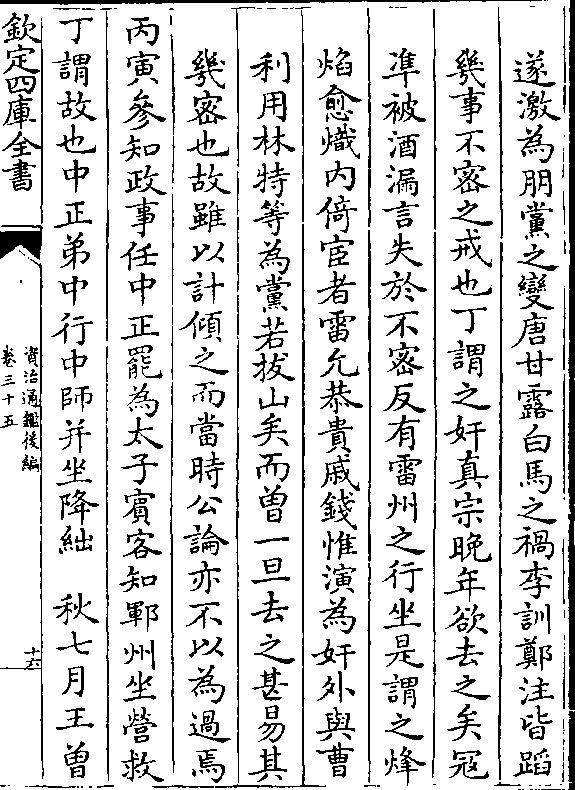 遂激為朋黨之變唐甘露白馬之禍李訓鄭注皆蹈
幾事不密之戒也丁謂之奸真宗晚年欲去之矣冦
凖被酒漏言失於不密反有雷州之行坐是謂之烽
焰愈熾内倚宦者雷允恭貴戚錢惟演為奸外與曹
利用林特等為黨若拔山矣而曾一旦去之甚易其
幾密也故雖以計傾之而當時公論亦不以為過焉
丙寅參知政事任中正罷為太子賔客知鄆州坐營救
丁謂故也中正弟中行中師并坐降絀　秋七月王曾
欽定四庫全書
資治通鑑後編
卷三十五
十六